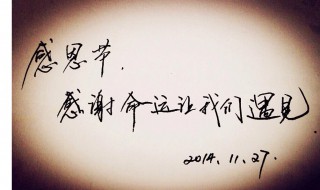 感恩节.
感谢命运让我们遇见
2014.11.27.